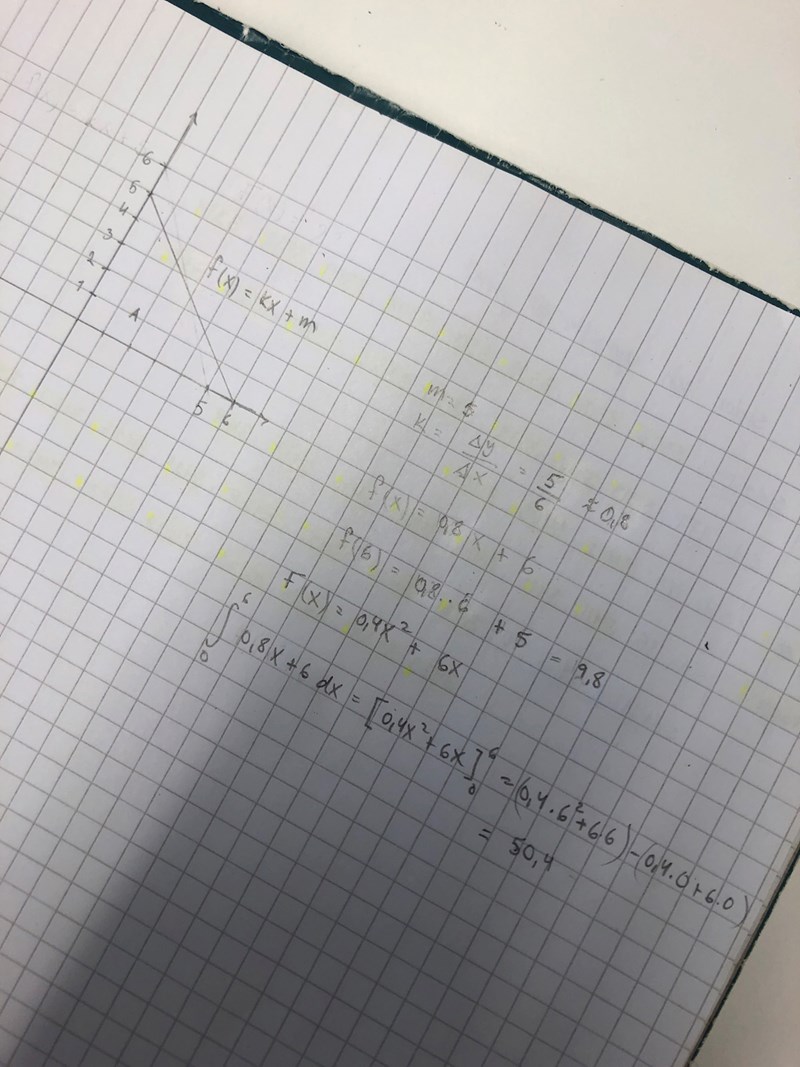 6
5
4
3
2
1
A
5 6
f(x) = kx + m
m = 5
k = Δy/Δx = 5/6 ≈ 0,8
f(x) = 0,8x + 6
f(6) = 0,8·6 + 5 = 9,8
F(x) = 0,4x² + 6x
∫₀⁶ 0,8x+6 dx = [0,4x²+6x]₀⁶ = (0,4·6²+6·6)-(0,4·0+6·0)
= 50,4